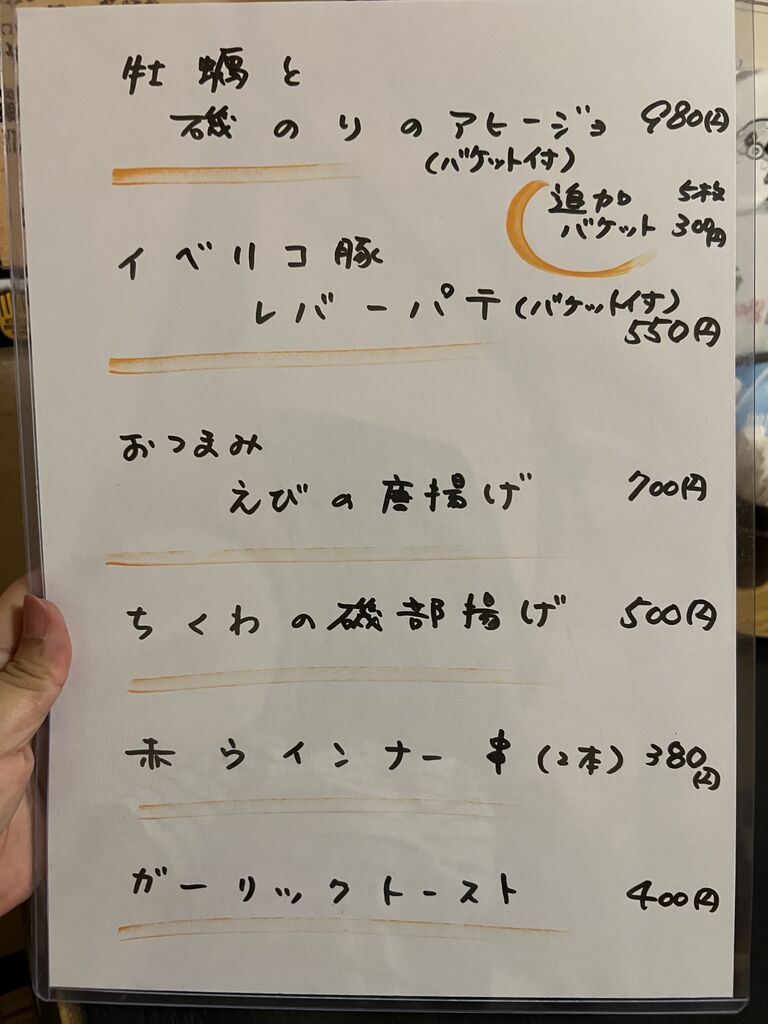 牡蠣と
磯のりのアヒージョ 980円
(バケット付)
追加 5枚
バケット 300円
イベリコ豚
レバーパテ(バケット付)
550円
おつまみ
えびの唐揚げ 700円
ちくわの磯部揚げ 500円
赤ウインナー串(2本) 380円
ガーリックトースト 400円